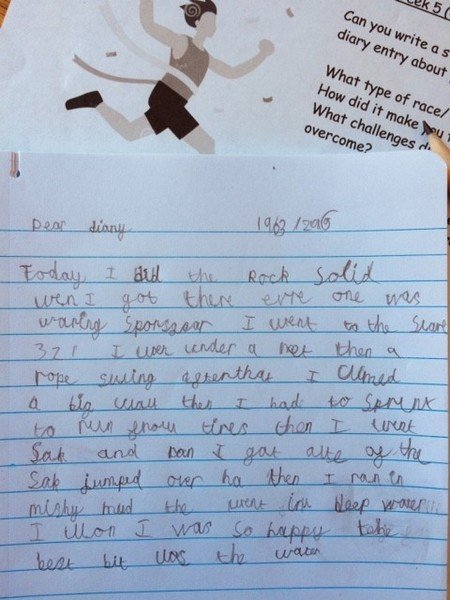 eek 5 (
Can you write a s
diary entry about
What type of race/
How did it make you
What challenges d
overcome?
Dear diary
Today I did the Rock Solid
wen I got there evre one was
waring I went to the
321 I went under a net then a
rope swing after that I
a big wall then I had to
to run tires then I went
Sak and ran I got of the
Sak jumped over then I ran in
mud the went deep water
I won I was so happy
best bit was the water